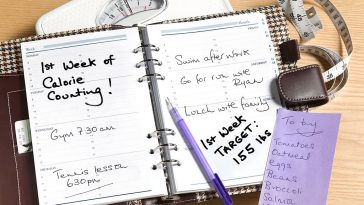 1st Week of
Calorie
Counting!
Gym 7.30am
Tennis lesson
6.30pm
Swim after work
Go for run with
Ryan
Lunch with family
1st Week
TARGET:
155 lbs
To buy
Tomatoes
Oatmeal
Eggs
Beans
Broccoli
Salmon